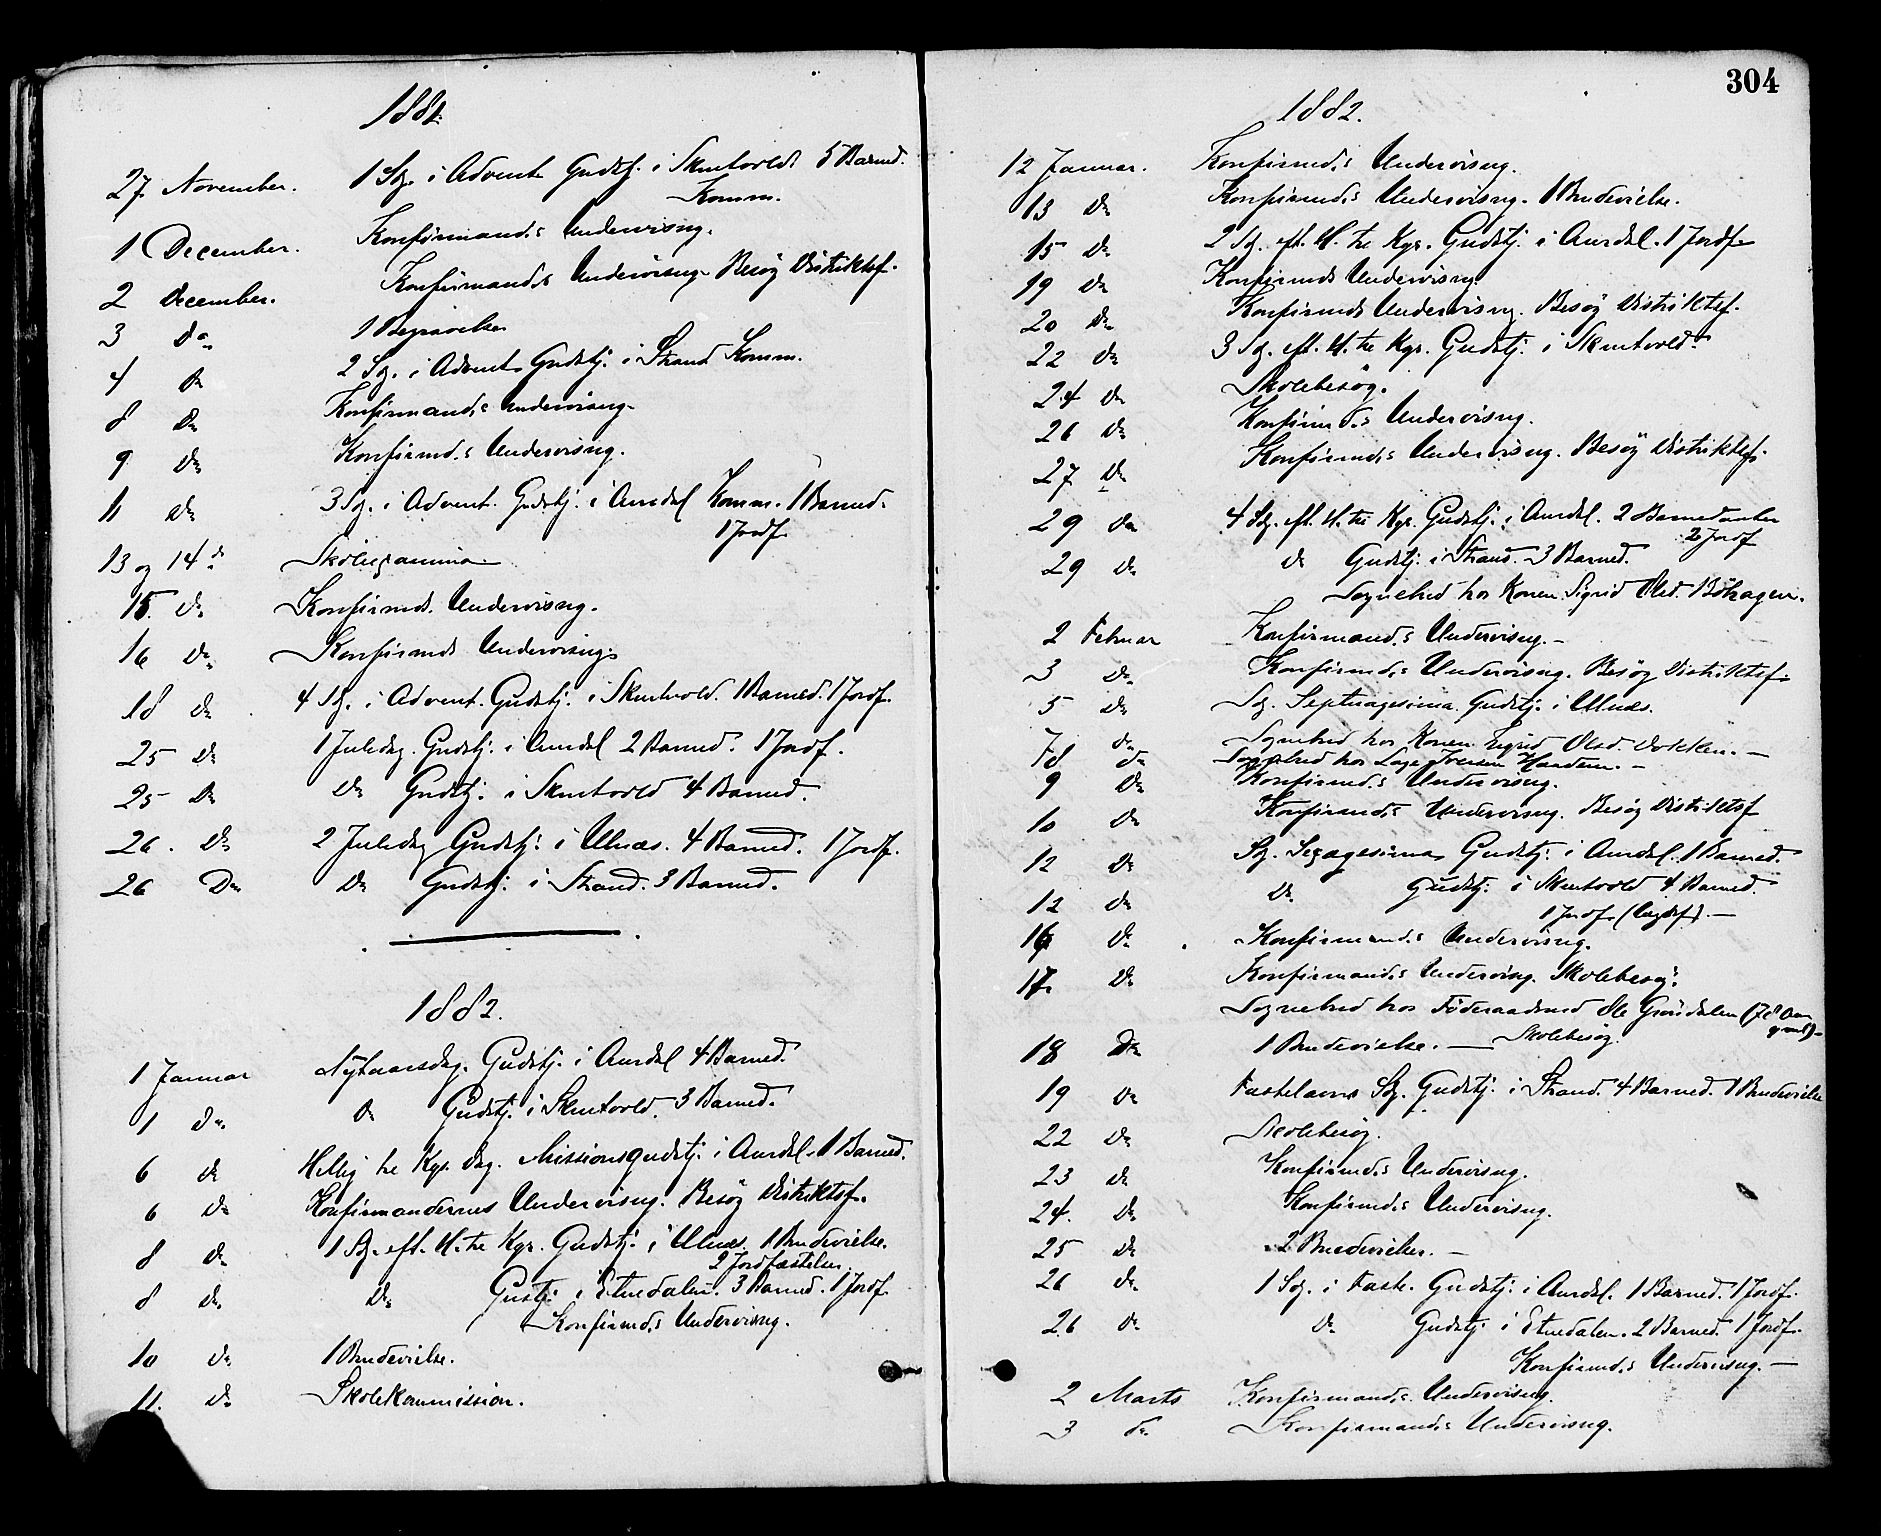 1881.
27 November. 1 Sg. i Advent Gudstj. i Skrutvold 5 Barned.
Komm.
1 December. Konfirmand.s Undervisng.
2 December. Konfirmand.s Undervisng. Besøg Distriktsf.
3 Do 1 Begravelse
4 Do 2 Sg. i Advent Gudstj. i Strand Komm.
8 Do Konfirmand.s Undervisng.
9 Do Konfirmd.s Undervisng.
11 Do 3 Sg. i Advent. Gudstj. i Aurdal Komm. 1 Barned.
1 Jordf.
13 og 14 do Skolexamina
15. Do Konfirmd. Undervisng.
16 Do Konfirmds Undervisng.
18 Do 4 Sg. i Advent. Gudstj. i Skrutvold. 1 Barned. 1 Jordf.
25 Do 1 Juledag. Gudstj. i Aurdal 2 Barned. 1 Jordf.
25 Do Do Gudstj. i Skrutvold 4 Barned.
26. Do 2 Juledag Gudstj. i Ulnæs. 4 Barned. 1 Jordf.
26 Do Do Gudstj. i Strand. 3 Barned.
1882.
1 Januar Nytaarsdag. Gudstj. i Aurdal 4 Barned.
1 Do Do Gudstj. i Skrutvold. 3 Barned.
6 do Hellig tre Kgr. dag. Missionsgudstj. i Aurdal. 1 Barned.
6 Do Konfirmandernes Undervisng. Besøg Distriktsf.
8 do 1 Sg. eft. H. tre Kgr. Gudstj. i Ulnæs. 1 Brudevielse.
2 Jordfæstelser.
8 do Do Gudstj. i Etnedalen. 3 Barned. 1 Jordf.
Konfirmd.s Undervisng.
10 do 1 Brudevielse.
11. do Skolekommission.
304
1882.
12 Januar. Konfirmd.s Undervisng.
13 Do Konfirmd.s Undervisng. 1 Brudevielse.
15 Do 2 Sg. eft. H. tre Kgr. Gudstj. i Aurdal. 1 Jordf.
19 Do Konfirmds Undervisng
20 Do Konfirmds Undervisng. Besøg Distriktsf.
22 Do 3 Sg. eft. H. tre Kgr. Gudstj. i Skrutvold.
24 Do Skolebesøg.
26 Do Konfirmd.s Undervisng.
27 Do Konfirmd.s Undervisng. Besøg Distriktsf.
29 Do 4 Sg. eft. H. tre Kgr. Gudstj. i Aurdal. 2 Barnedaaber
2 Jordf
29 Do do Gudstj. i Strand. 3 Barned.
Sognebud hos Konen Sigrid Olsd. Böhagen.
2 Februar Konfirmand.s Undervisng.
3 Do Konfirmd.s Undervisng. Besøg Distriktsf.
5 Do Sg. Septuagesima. Gudstj. i Ulnæs.
7 do Sognebud hos Konen Sigrid Olsd. Dokken.
8 do Sognebud hos Iversen
9 Do Konfirmd.s Undervisng.
10 Do Konfirmands Undervisng. Besøg Distriktsf
12 Do Sg. Sexagesima Gudstj. i Aurdal. 1 Barned.
12 Do Do Gudstj. i Skrutvold 4 Barned.
1 Jordf.
16 Do Konfirmand.s Undervisng.
17. Do Konfirmand.s Undervisng. Skolebesøg.
Sognebud hos Föderaadsmd Ole Gröndalen (78 Aar
gml)
18 Do 1 Brudevielse. — Skolebesøg.
19 Do Fastelavns Sg. Gudstj. i Strand. 4 Barned. 1 Brudevielse
22 Do Skolebesøg.
23 Do Konfirmd.s Undervisng.
24. Do Konfirmd.s Undervisng.
25 Do 2 Brudevielser.
26 do 1 Sg. i Faste. Gudstj. i Aurdal. 1 Barned. 1 Jordf.
26 do Do Gudstj i Etnedalen. 2 Barned. 1 Jordf.
Konfirmd.s Undervisng.
2 Marts Konfirmand.s Undervisng.
3 do Konfirmand.s Undervisng.